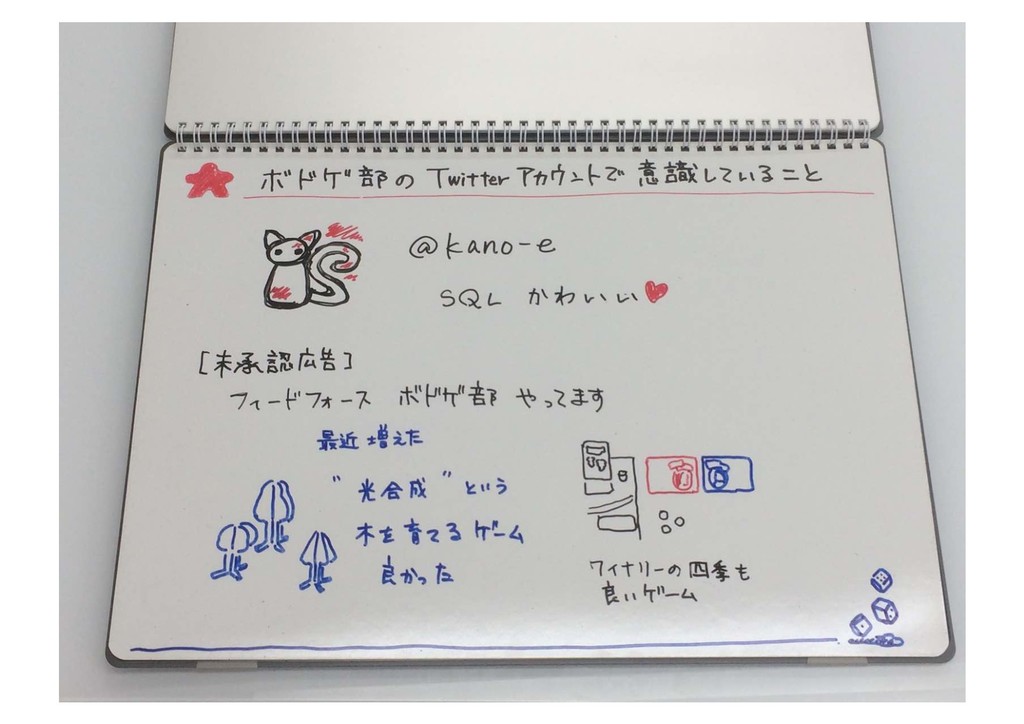 ボドゲ部の Twitter アカウントで 意識していること
@kano-e
SQL かわいい
[未承認広告]
フィードフォース ボドゲ部 やってます
最近 増えた
"光合成" という
木を育てるゲーム
良かった
ワイナリーの四季も
良いゲーム